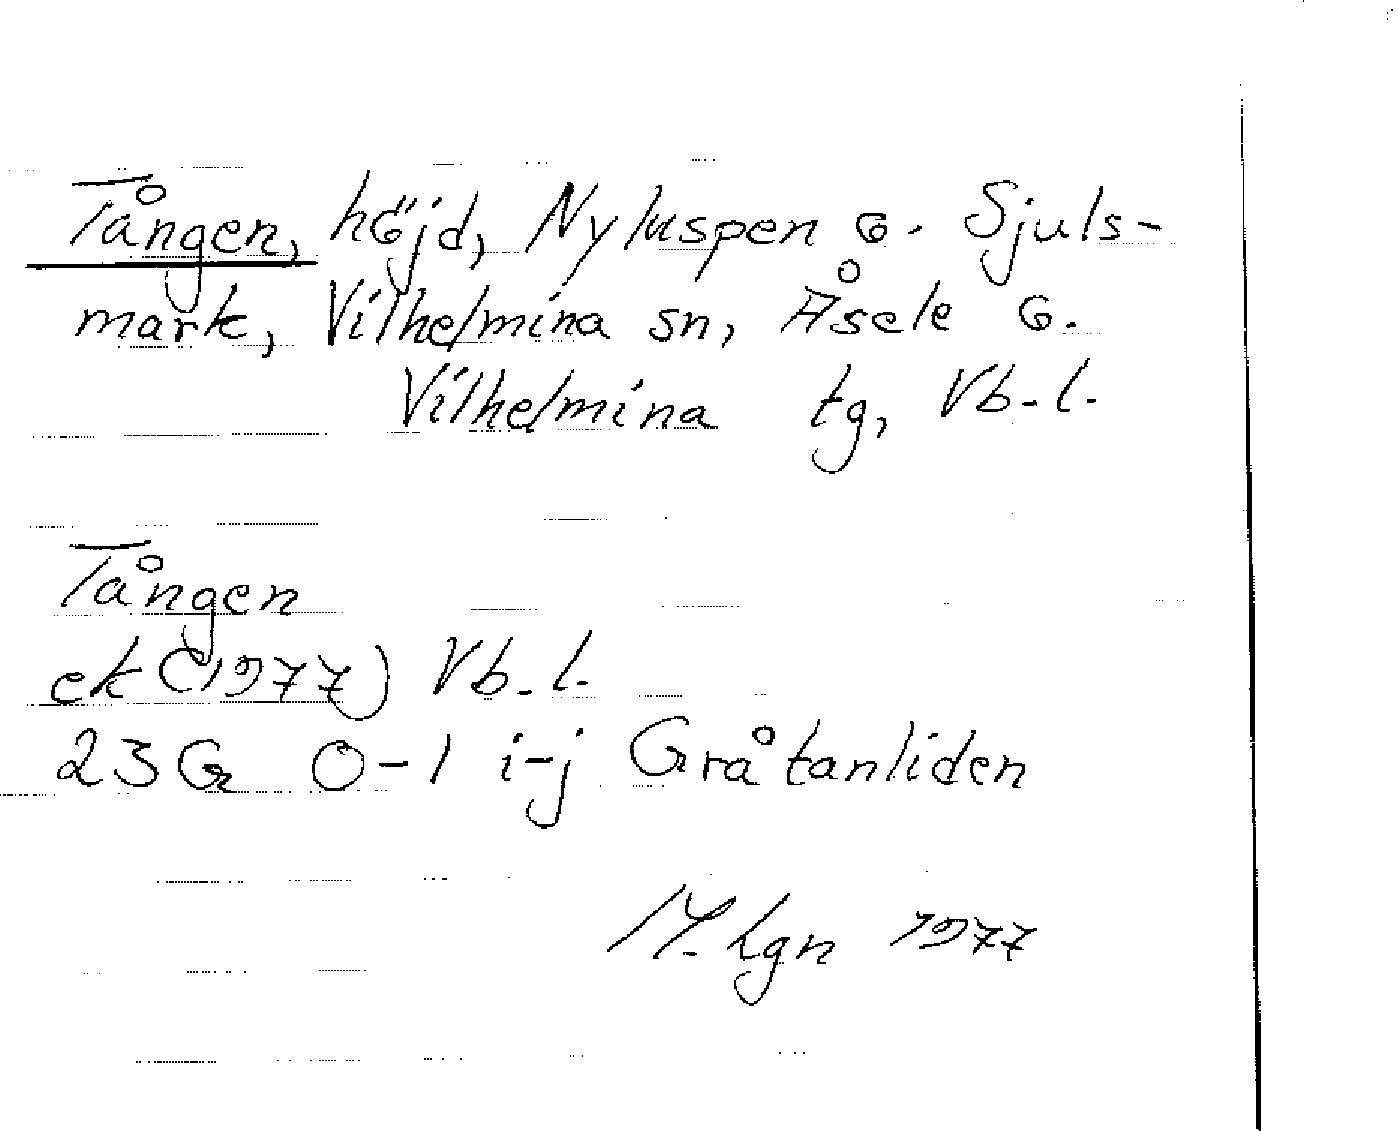 Tången, höjd, Nyluspen o. Sjuls-
mark, Vilhelmina sn, Åsele o.
Vilhelmina tg, Vb. l.
Tången
ek (1977) Vb. l.
23G 0-1 i-j Gråtanliden
M. Lgn 1977